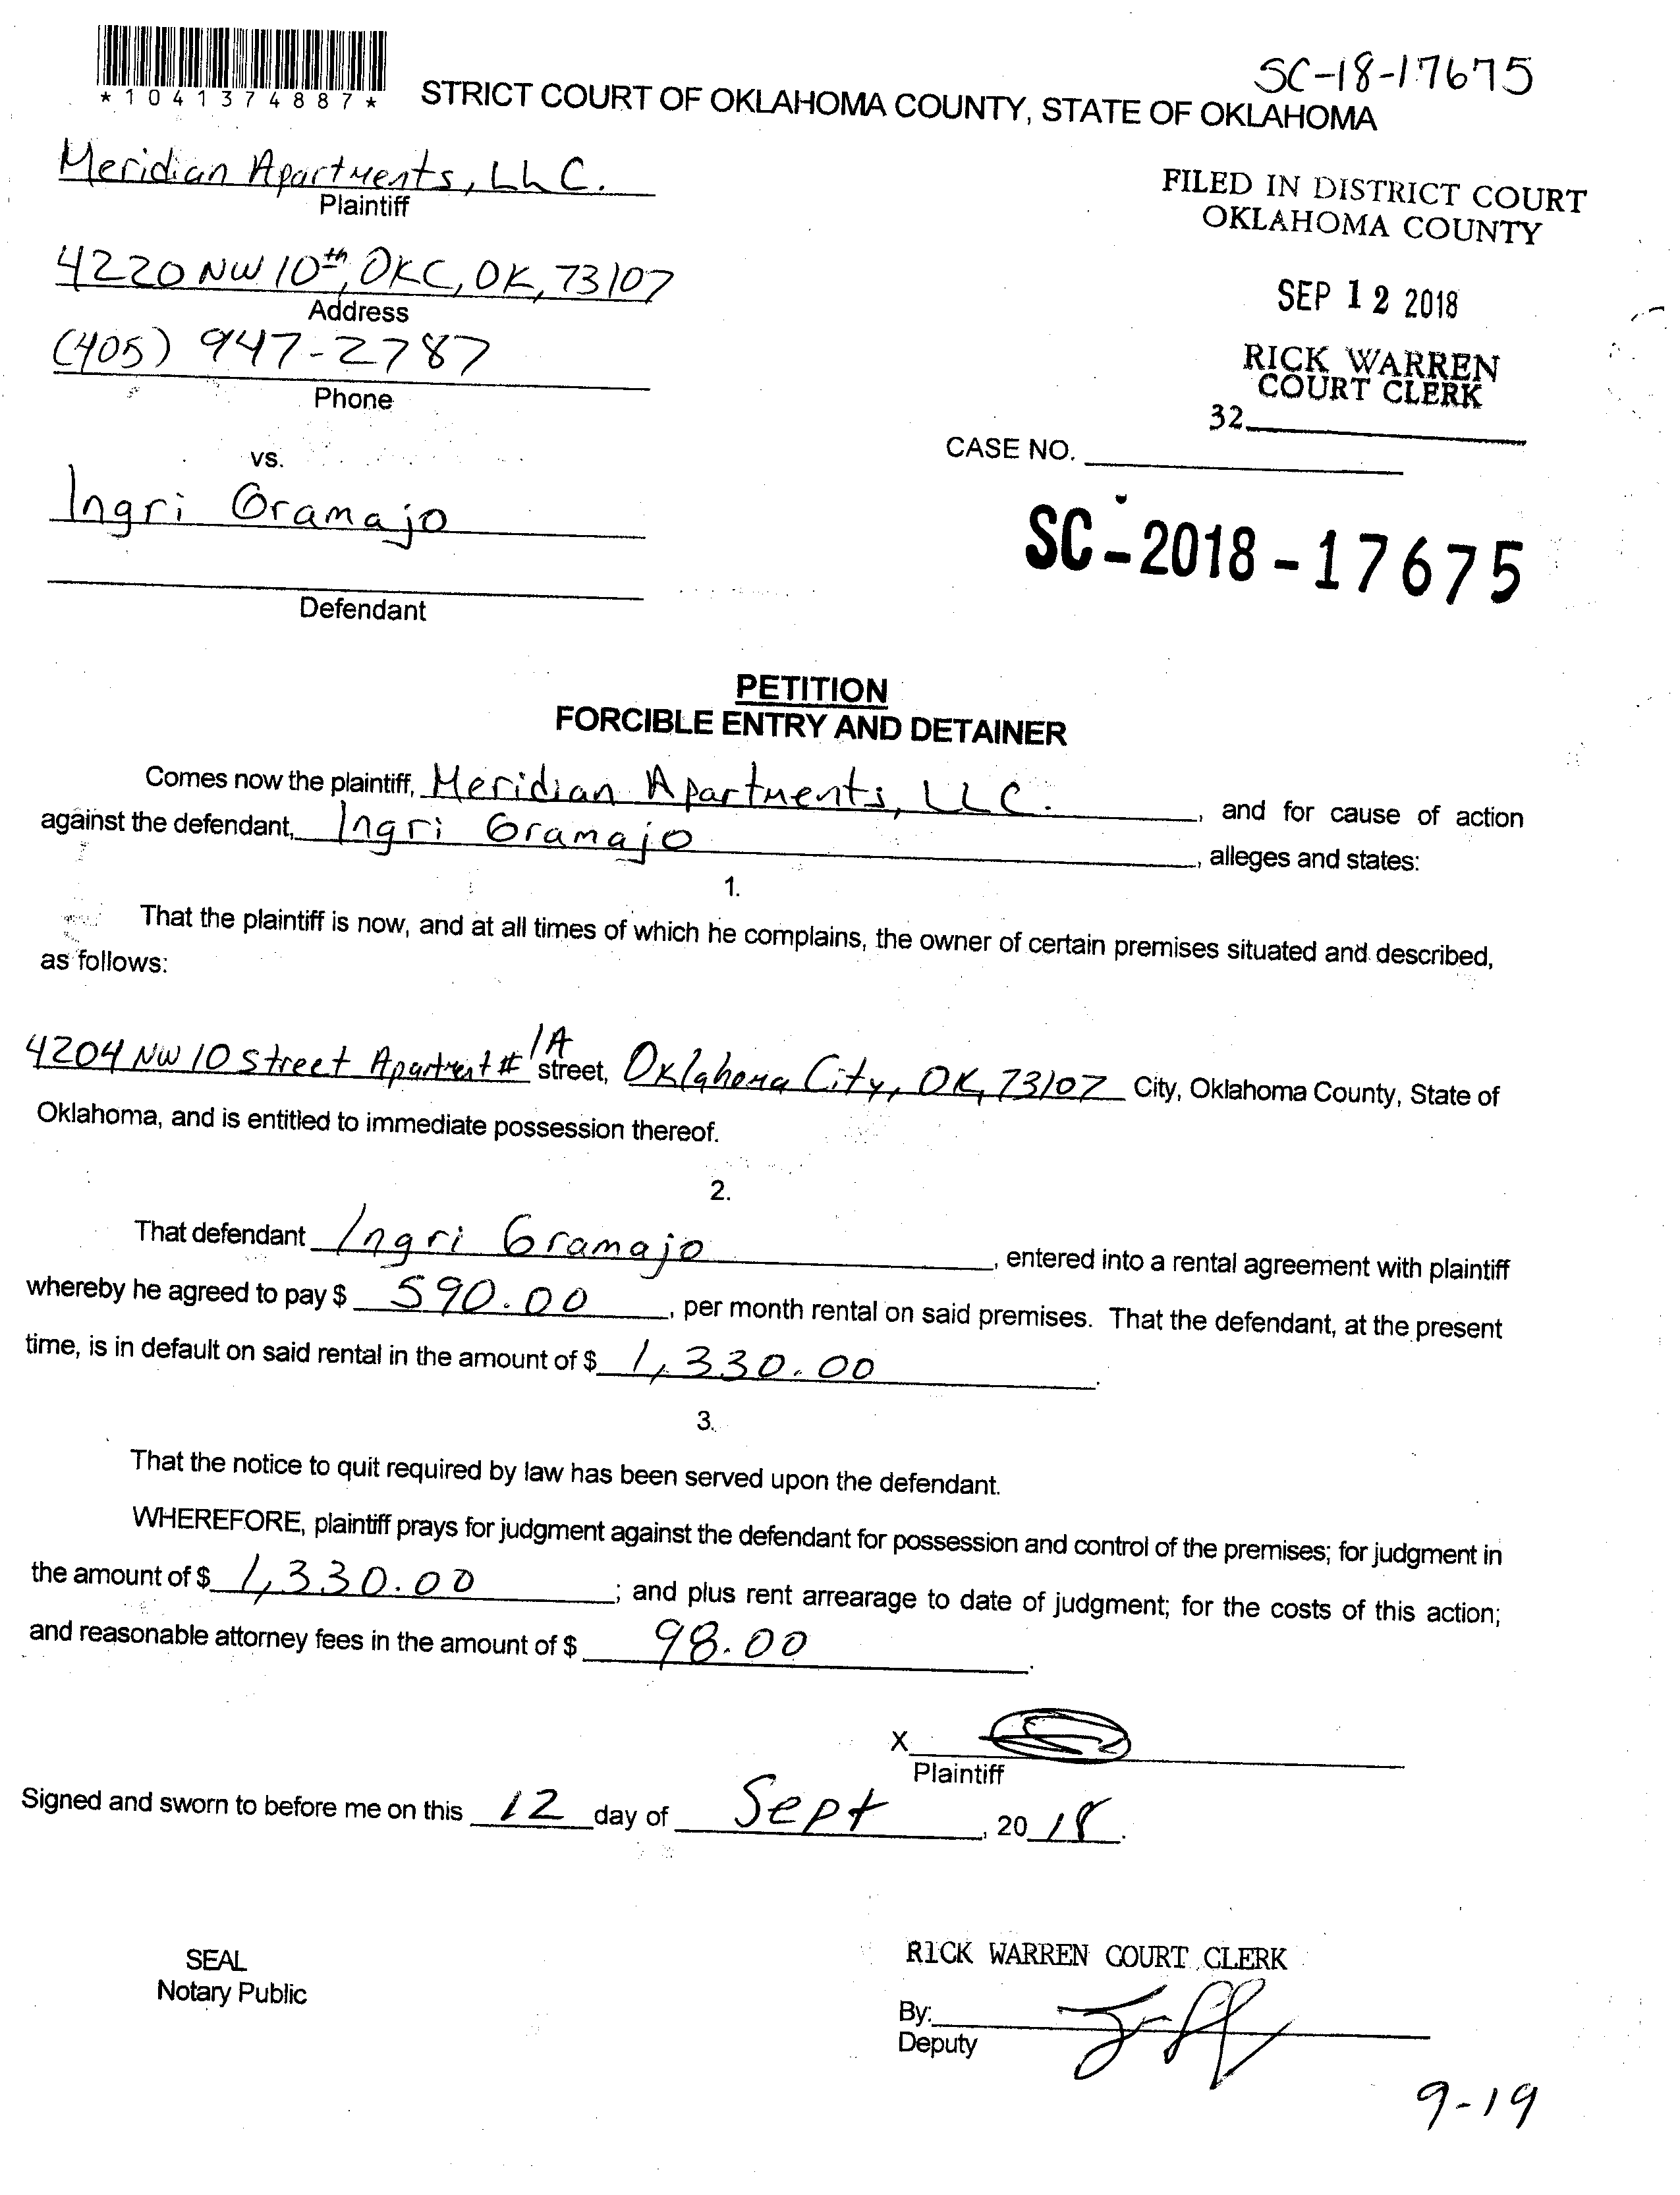 SC-18-17675
*1041374887*
STRICT COURT OF OKLAHOMA COUNTY, STATE OF OKLAHOMA
Meridian Apartments, LLC.
Plaintiff
FILED IN DISTRICT COURT
OKLAHOMA COUNTY
4220 NW 10th, OKC, OK, 73107
Address
SEP 12 2018
(405) 947-2787
Phone
RICK WARREN
COURT CLERK
32
CASE NO.
vs.
Ingri Gramajo
SC-2018-17675
Defendant
PETITION
FORCIBLE ENTRY AND DETAINER
Comes now the plaintiff, Meridian Apartments, LLC. , and for cause of action
against the defendant, Ingri Gramajo , alleges and states:
1.
That the plaintiff is now, and at all times of which he complains, the owner of certain premises situated and described,
as follows:
4204 NW 10 Street Apartment # 1A street, Oklahoma City, OK, 73107 City, Oklahoma County, State of
Oklahoma, and is entitled to immediate possession thereof.
2.
That defendant Ingri Gramajo , entered into a rental agreement with plaintiff
whereby he agreed to pay $ 590.00 , per month rental on said premises. That the defendant, at the present
time, is in default on said rental in the amount of $ 1,330.00 .
3.
That the notice to quit required by law has been served upon the defendant.
WHEREFORE, plaintiff prays for judgment against the defendant for possession and control of the premises; for judgment in
the amount of $ 1,330.00 ; and plus rent arrearage to date of judgment; for the costs of this action;
and reasonable attorney fees in the amount of $ 98.00 .
X
Plaintiff
Signed and sworn to before me on this 12 day of Sept , 20 18 .
SEAL
Notary Public
RICK WARREN COURT CLERK
By:
Deputy
9-19